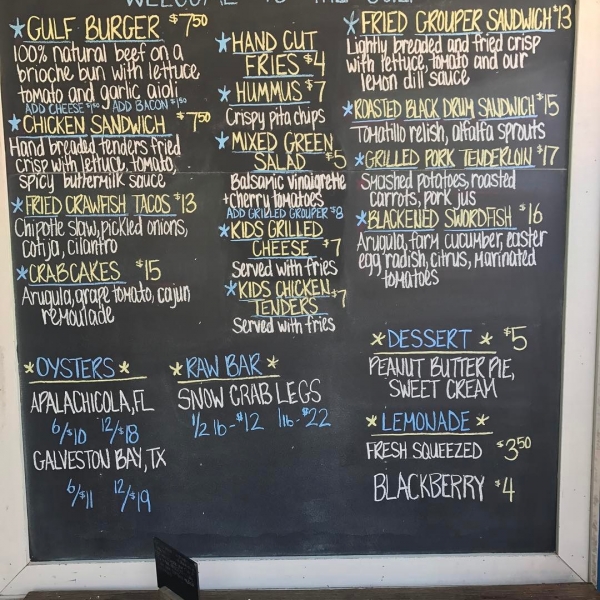 WELCOME TO THE GULF
*GULF BURGER $7.50
100% natural beef on a
brioche bun with lettuce
tomato and garlic aioli
ADD CHEESE $1.50 ADD BACON $1.50
*CHICKEN SANDWICH $7.50
Hand breaded tenders fried
crisp with lettuce, tomato,
spicy buttermilk sauce
*FRIED CRAWFISH TACOS $13
Chipotle slaw, pickled onions,
cotija, cilantro
*CRABCAKES $15
Arugula, grape tomato, cajun
remoulade
*HAND CUT
FRIES $4
*HUMMUS $7
Crispy pita chips
*MIXED GREEN
SALAD $5
Balsamic vinaigrette
+cherry tomatoes
ADD GRILLED GROUPER $8
*KIDS GRILLED
CHEESE $7
Served with fries
*KIDS CHICKEN
TENDERS $7
Served with fries
*FRIED GROUPER SANDWICH $13
Lightly breaded and fried crisp
with lettuce, tomato and our
lemon dill sauce
*ROASTED BLACK DRUM SANDWICH $15
Tomatillo relish, alfalfa sprouts
*GRILLED PORK TENDERLOIN $17
Smashed potatoes, roasted
carrots, pork jus
*BLACKENED SWORDFISH $16
Arugula, farm cucumber, easter
egg radish, citrus, marinated
tomatoes
*OYSTERS*
APALACHICOLA, FL
6/$10 12/$18
GALVESTON BAY, TX
6/$11 12/$19
*RAW BAR*
SNOW CRAB LEGS
1/2 lb-$12 1lb-$22
*DESSERT* $5
PEANUT BUTTER PIE,
SWEET CREAM
*LEMONADE*
FRESH SQUEEZED $3.50
BLACKBERRY $4